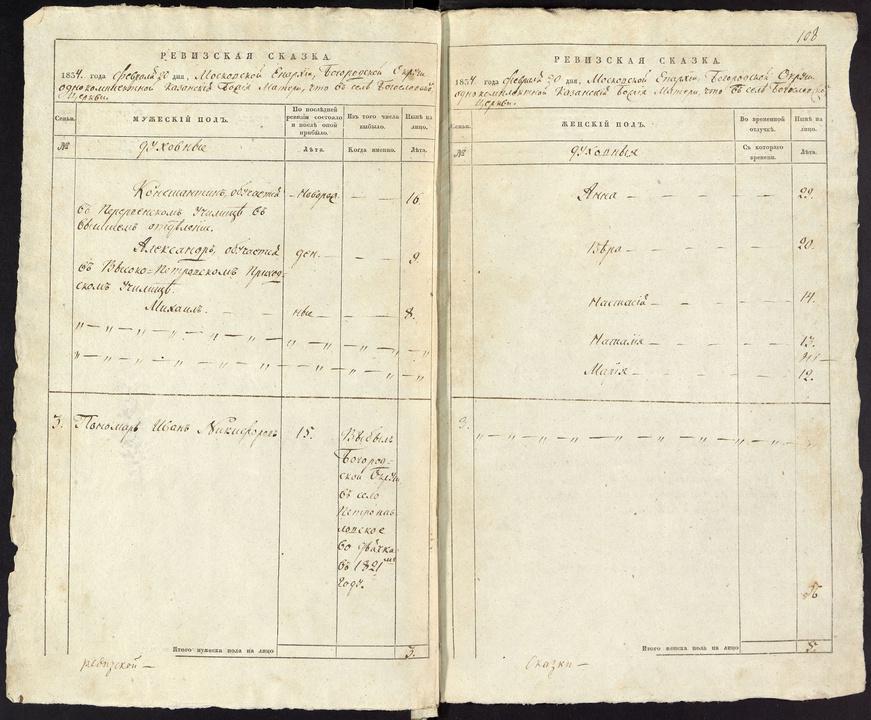 РЕВИЗСКАЯ СКАЗКА
1834. года февраля 20 дня, Московской Епархіи, Богородской Округи
однокомплектной Казанскія Божія Матери, что въ селѣ Богословскомъ
Церкви.
Семьи.
МУЖЕСКІЙ ПОЛЪ.
По послѣдней ревизіи состояло и послѣ оной прибыло.
Изъ того числа выбыло.
Нынѣ на лицо.
№
духовные
Лѣта.
Когда именно.
Лѣта.
Константинъ, обучается – Новорож – – 16.
въ Перервенскомъ Училищѣ въ
высшемъ отдѣленіи.
Александръ, обучается ден. – – 9.
въ Высоко=Петровскомъ Приход-
скомъ Училищѣ.
Михаилъ. – ные – – 8.
3. Пономарь Иванъ Никифоровъ 15.
Выбылъ
Богород-
ской Округи
въ село
Петропав-
ловское
во дьячка
въ 1821мъ
году.
Итого мужеска пола на лицо 3.
ревизской –
108
РЕВИЗСКАЯ СКАЗКА
1834 года февраля 20 дня, Московской Епархіи, Богородской Округи
однокомплектной Казанскія Божія Матери, что въ селѣ Богословской
Церкви.
Семьи.
ЖЕНСКІЙ ПОЛЪ.
Во временной отлучкѣ.
Нынѣ на лицо.
№
духовныя
Съ котораго времени.
Лѣта.
Анна – – – – 23.
Вѣра – – – – 20.
Настасія – – – – 14.
Наталія – – – 13.
Марія – – – – 12.
3.
Итого женска пола на лицо 5.
Сказки –